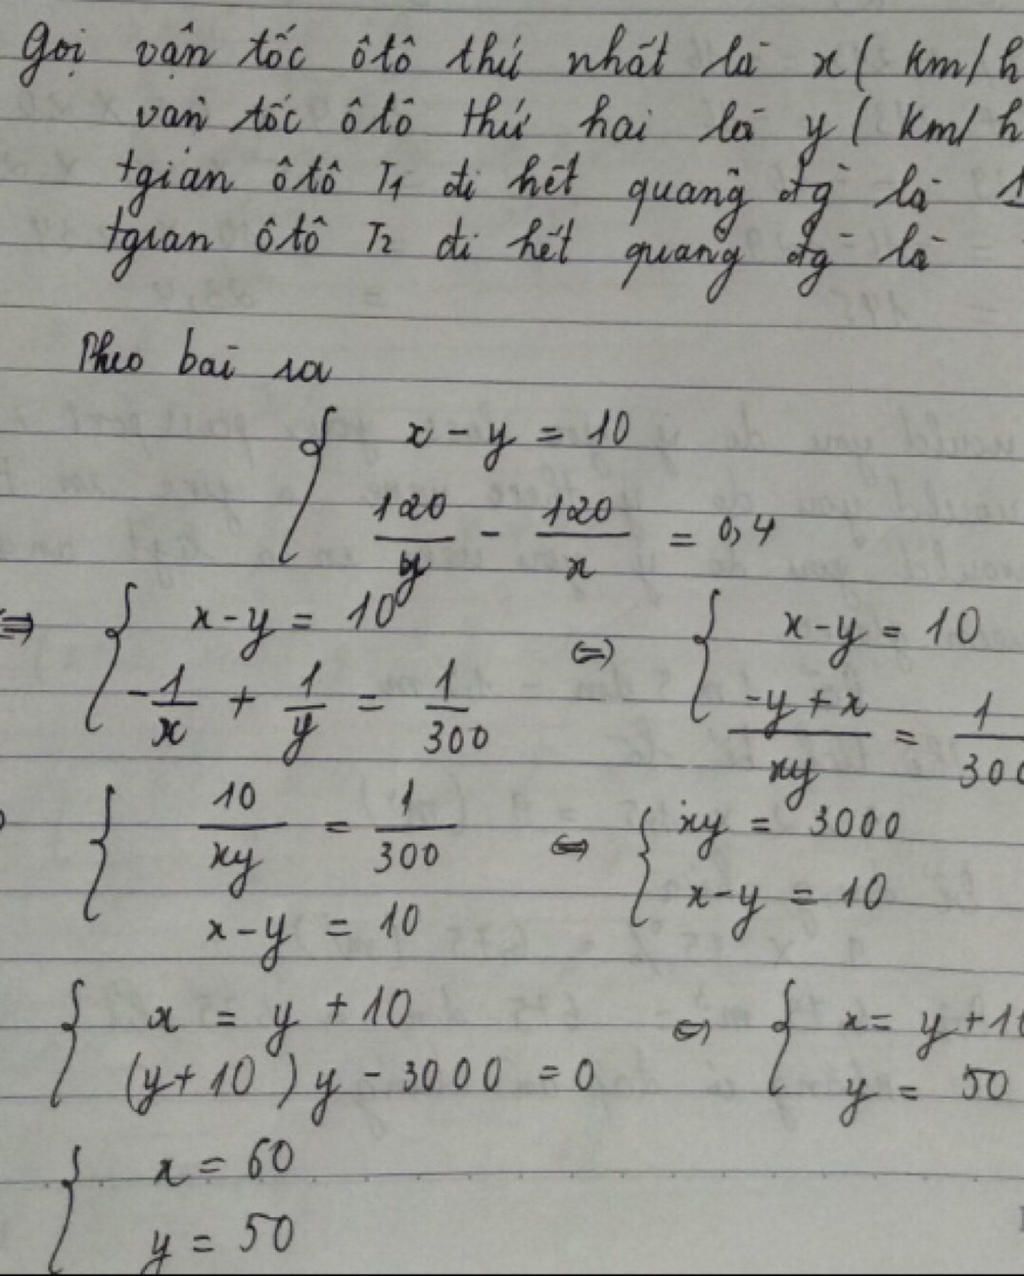 Gọi vận tốc ôtô thứ nhất là x ( km/h
vận tốc ôtô thứ hai là y ( km/h
tgian ôtô T1 đi hết quãng đg là
tgian ôtô T2 đi hết quãng đg là
Theo bài ra
x - y = 10
120/y - 120/x = 0,4
x - y = 10 ⇔ x - y = 10
-1/x + 1/y = 1/300 (-y + x)/xy = 1/300
10/xy = 1/300 ⇔ xy = 3000
x - y = 10 x - y = 10
x = y + 10 ⇔ x = y + 10
(y + 10) y - 3000 = 0 y = 50
x = 60
y = 50